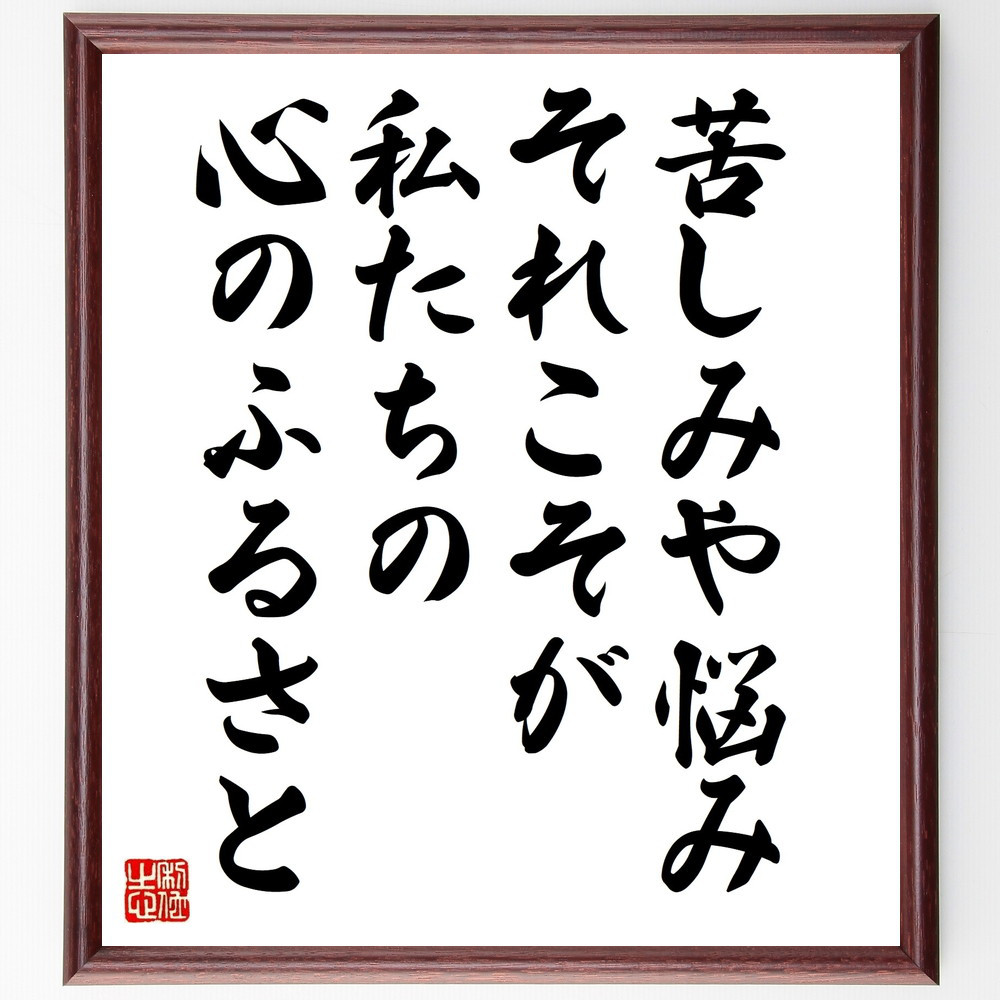 苦しみや悩み
それこそが
私たちの
心のふるさと